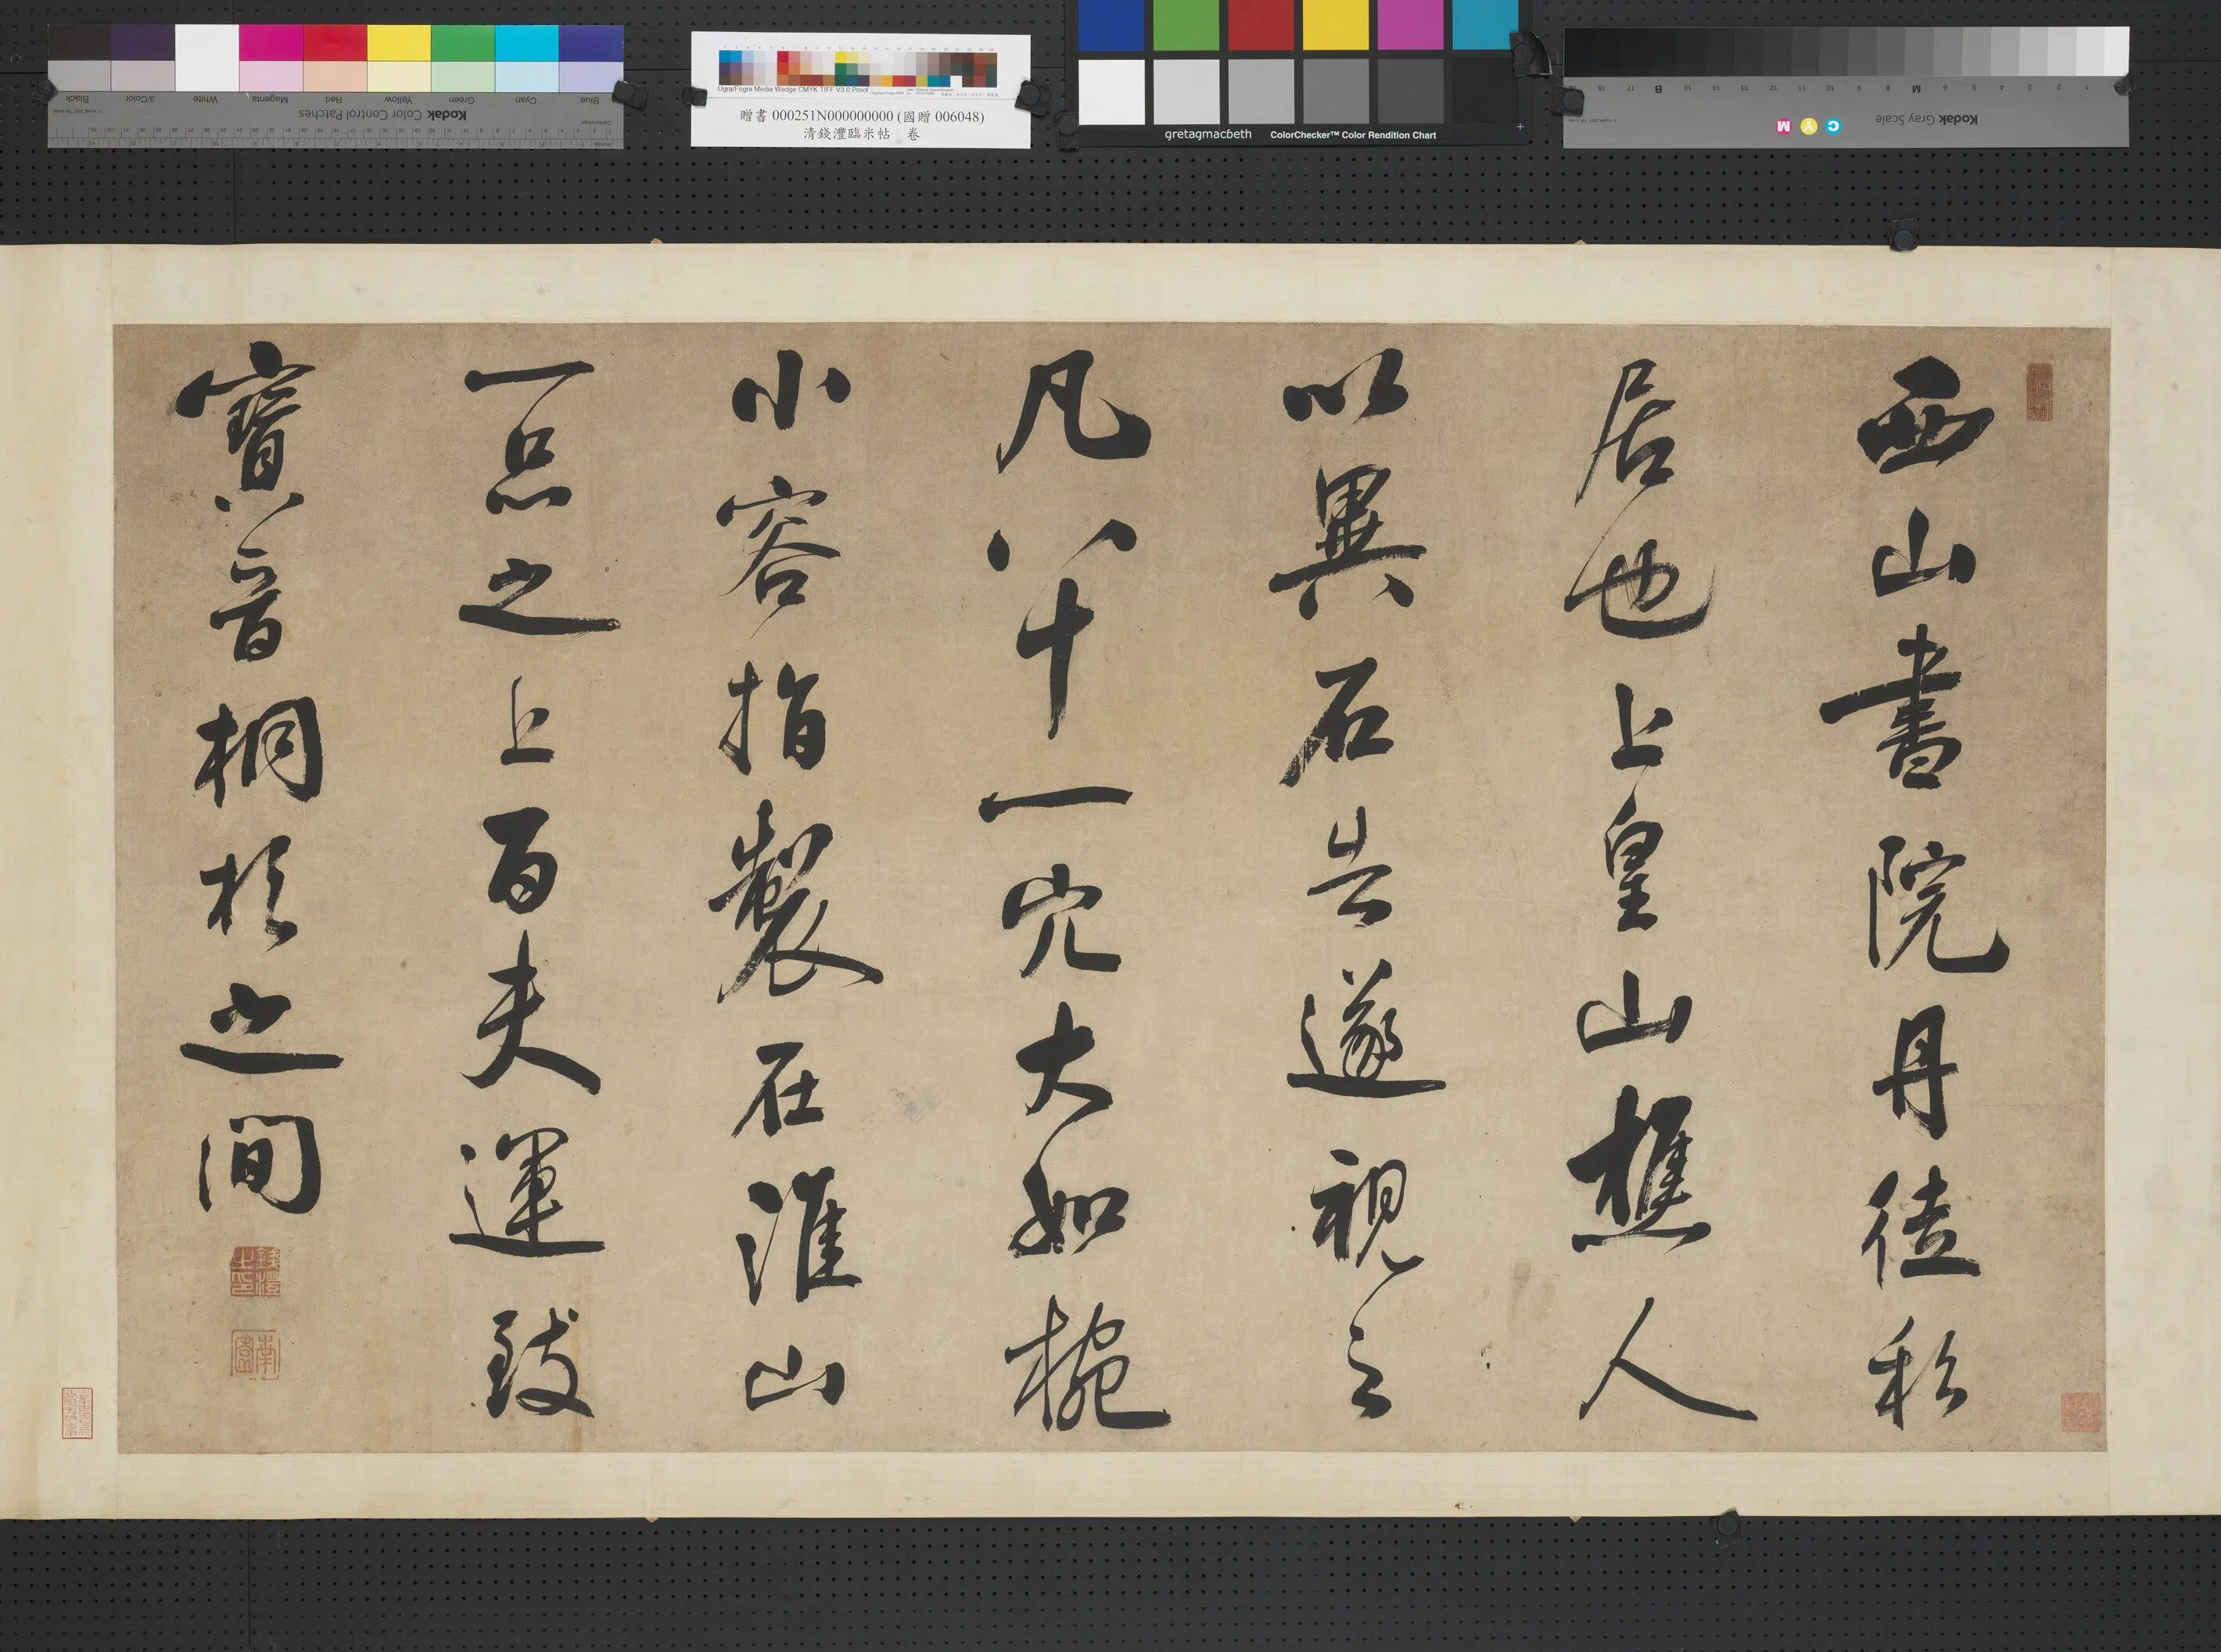 Kodak Color Control Patches
Blue Cyan Green Yellow Red Magenta White 3/Color Black
Ugra/Fogra Media Wedge CMYK TIFF V3.0 Proof
贈書 000251N000000000 (國贈 006048)
清錢灃臨米帖 卷
gretagmacbeth ColorChecker™ Color Rendition Chart
Kodak Gray Scale
C Y M
西山書院丹徒私
居也上皇山樵人
以異石告遂視之
凡八十一穴大如椀
小容指製在淮山
一品之上百夫運致
寶晉桐杉之間
錢灃之印
南園